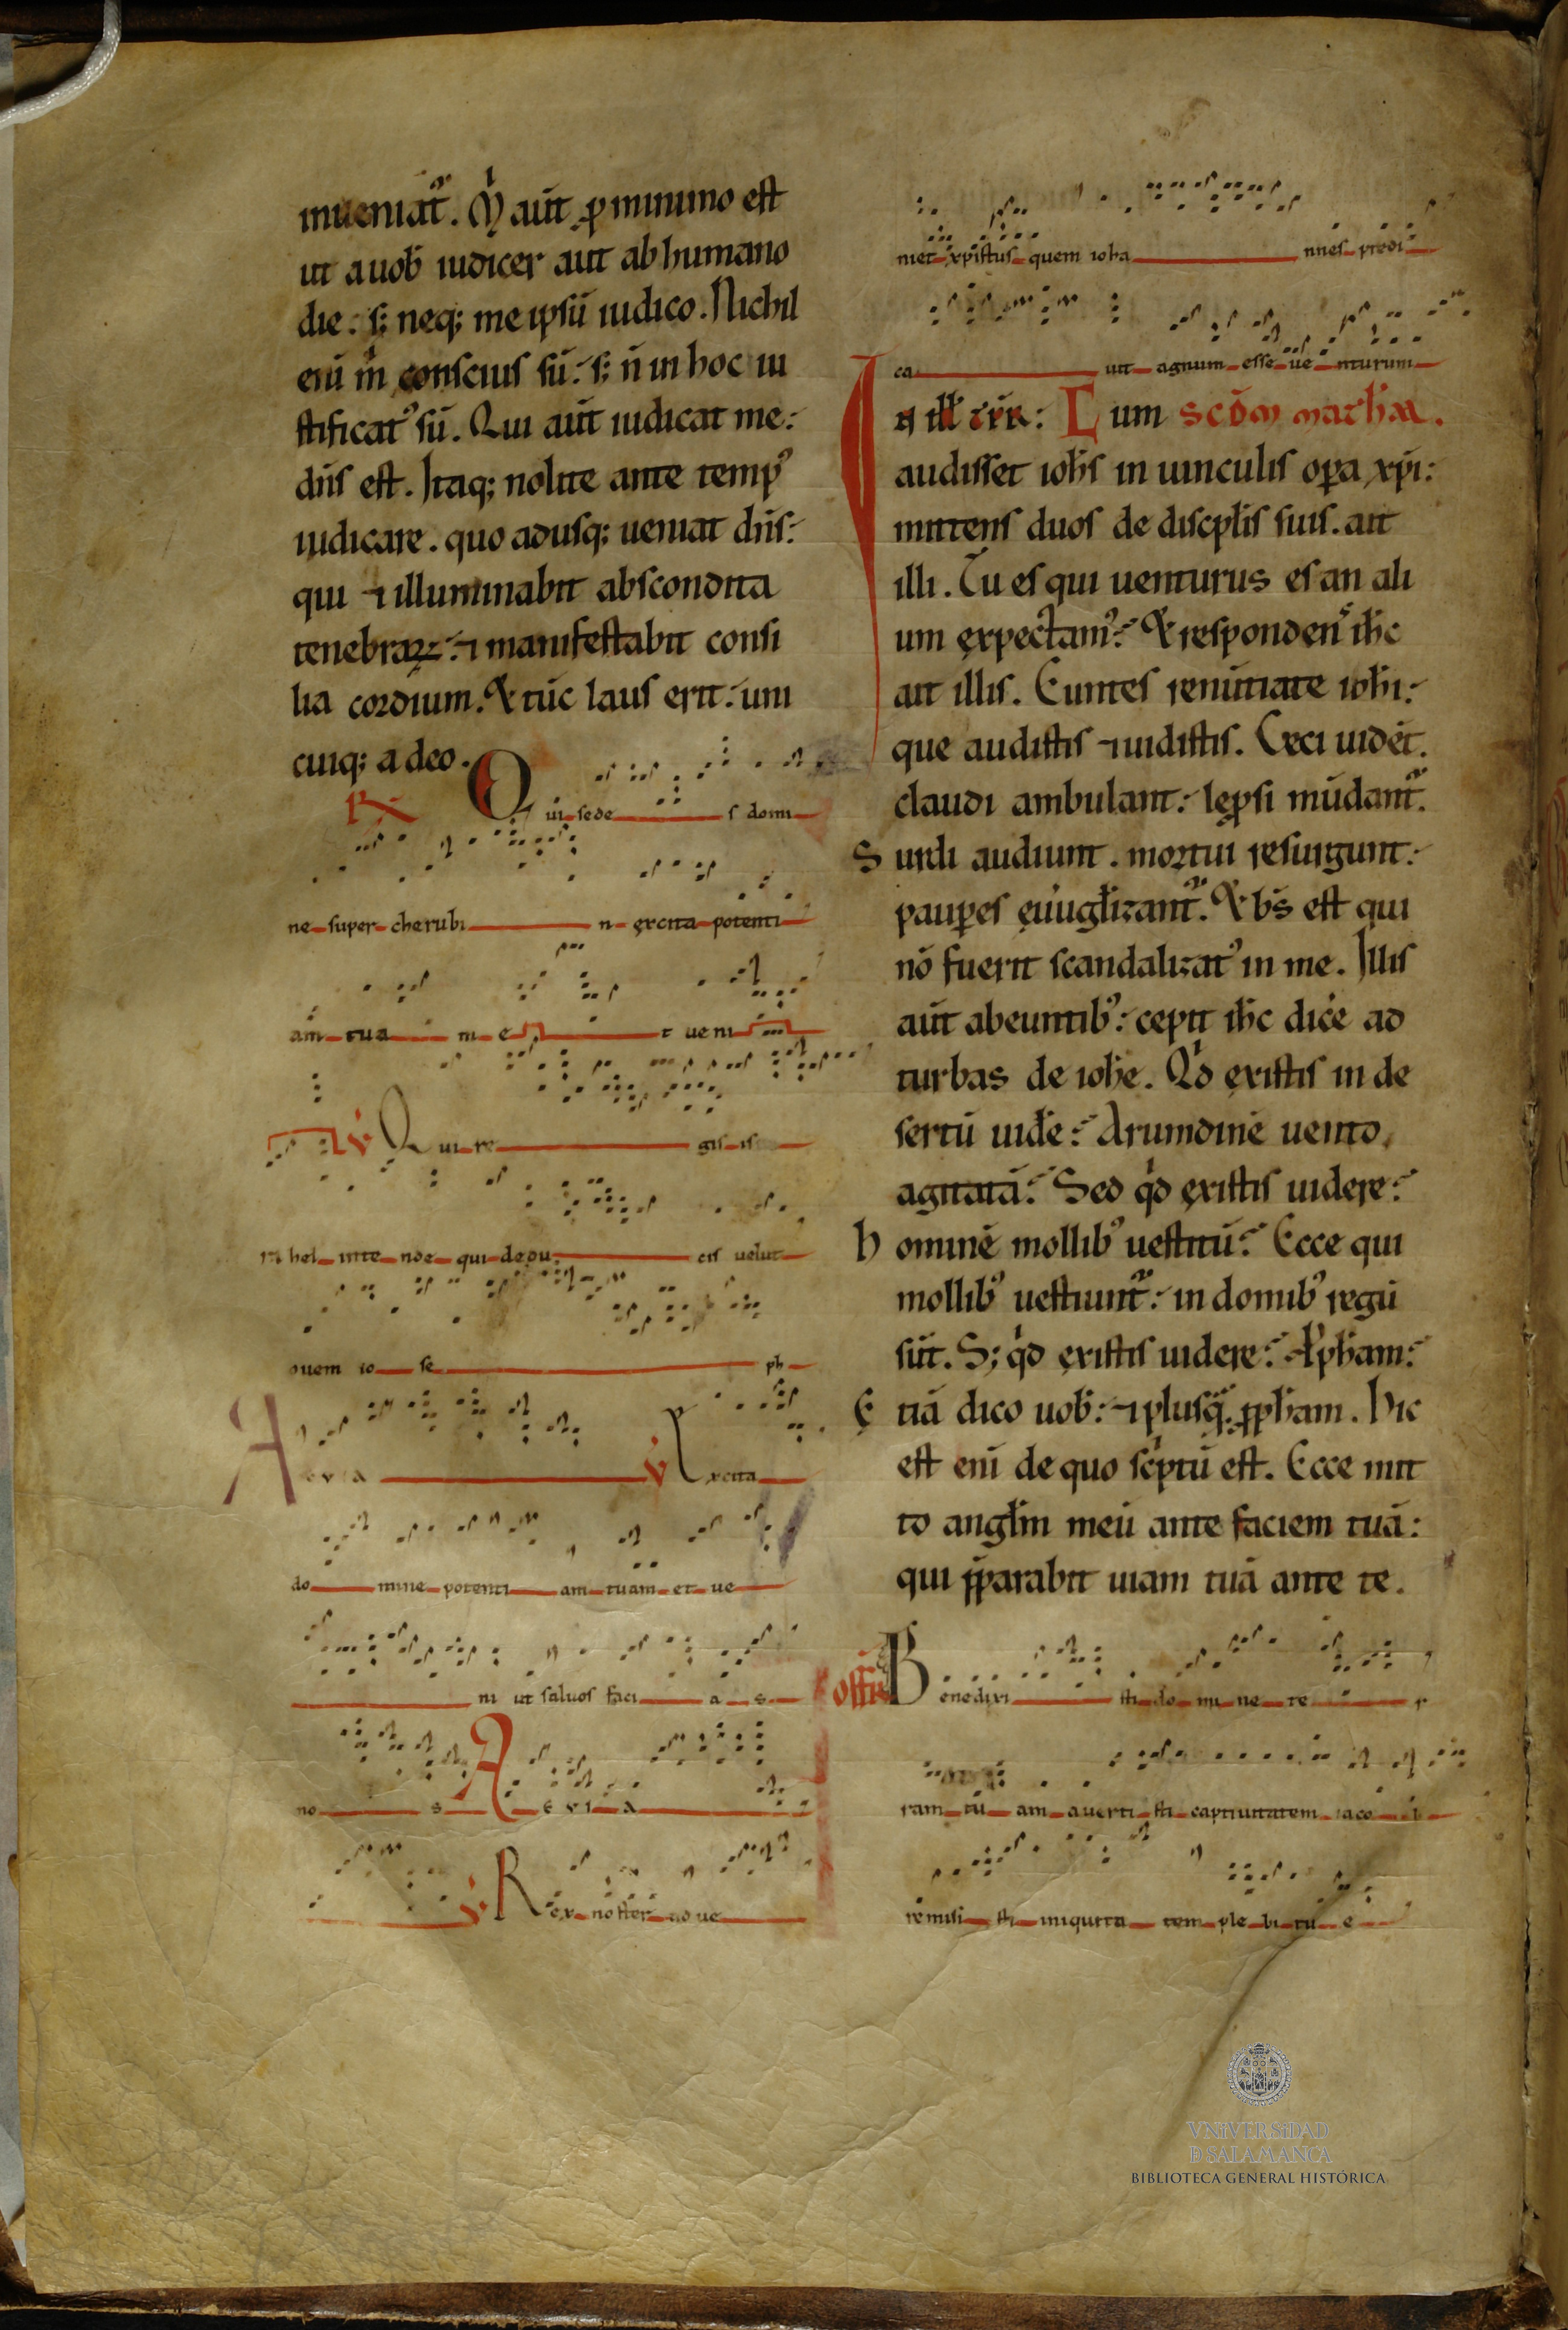 inueniat᷑. M̉ aūt ꝓ minimo est
ut a uob̄ iudicer aut ab humano
die. s; neq; me ipsū iudico. Nichil
eni m̉ conscius sū. s; n̄ in hoc iu
stificatꝰ sū. Qui aūt iudicat me.
dn̄s est. Itaq; nolite ante tempꝰ
iudicare. quo adusq; ueniat dn̄s.
qui ⁊ illuminabit abscondita
tenebraꝝ. ⁊ manifestabit consi
lia cordium. & tūc laus erit. uni
cuiq; a deo.
R̸ Qui sede s domi
ne super cherubi n excita potenti
am tua m e t ueni
V̇ Qui re gis is
ra hel inte nde qui dedu cis uelut
ouem io se ph
A e v i a V̇ Excita
do mine potenti am tuam et ue
ni ut saluos faci a s
no s A e v i a
V̇ Rex noster ad ue
niet xpistus quem ioha nnes predi
ca uit agnum esse ue nturum
In ill̄ tēr: Cum Scd̄m math̄m.
audisset ioh̄s in uinculis oꝑa xp̄i:
mittens duos de discpl̄is suis. ait
illi. Tu es qui uenturus es an ali
um expectamꝰ: & respondenſ ih̄c
ait illis. Euntes renūtiate ioh̄i:
que audistis ⁊ uidistis. Ceci uidēt.
claudi ambulant: lep̱si mūdant᷑.
Surdi audiunt. mortui resurgunt:
pauꝑes euuglīzant᷑. & bs̄ est qui
nō fuerit scandalizatꝰ in me. Illis
aūt abeuntibꝰ: cepit ih̄c dice ad
turbas de ioh̄e. Qd̉ existis in de
sertū uide: Arundinē uento
agitatā: Sed qd̉ existis uidere:
hominē mollibꝰ uestitū: Ecce qui
mollibꝰ uestiunt᷑: in domibꝰ regū
sūt. S; qd̉ existis uidere: Ꝓph̄am:
Etiā dico uob̄: ⁊ plusq̄ ꝓph̄am. Hic
est enī de quo sc̉ptū est. Ecce mit
to angl̄m meū ante faciem tuā:
qui p̄parabit uiam tuā ante te.
off̄r Benedixi sti do mi ne te r
ram tu am auerti sti captiuitatem iaco b
remisi sti iniquita tem ple bi tu e
VNiVERSiDAD
Ð SALAMANCA
BIBLIOTECA GENERAL HISTÓRICA